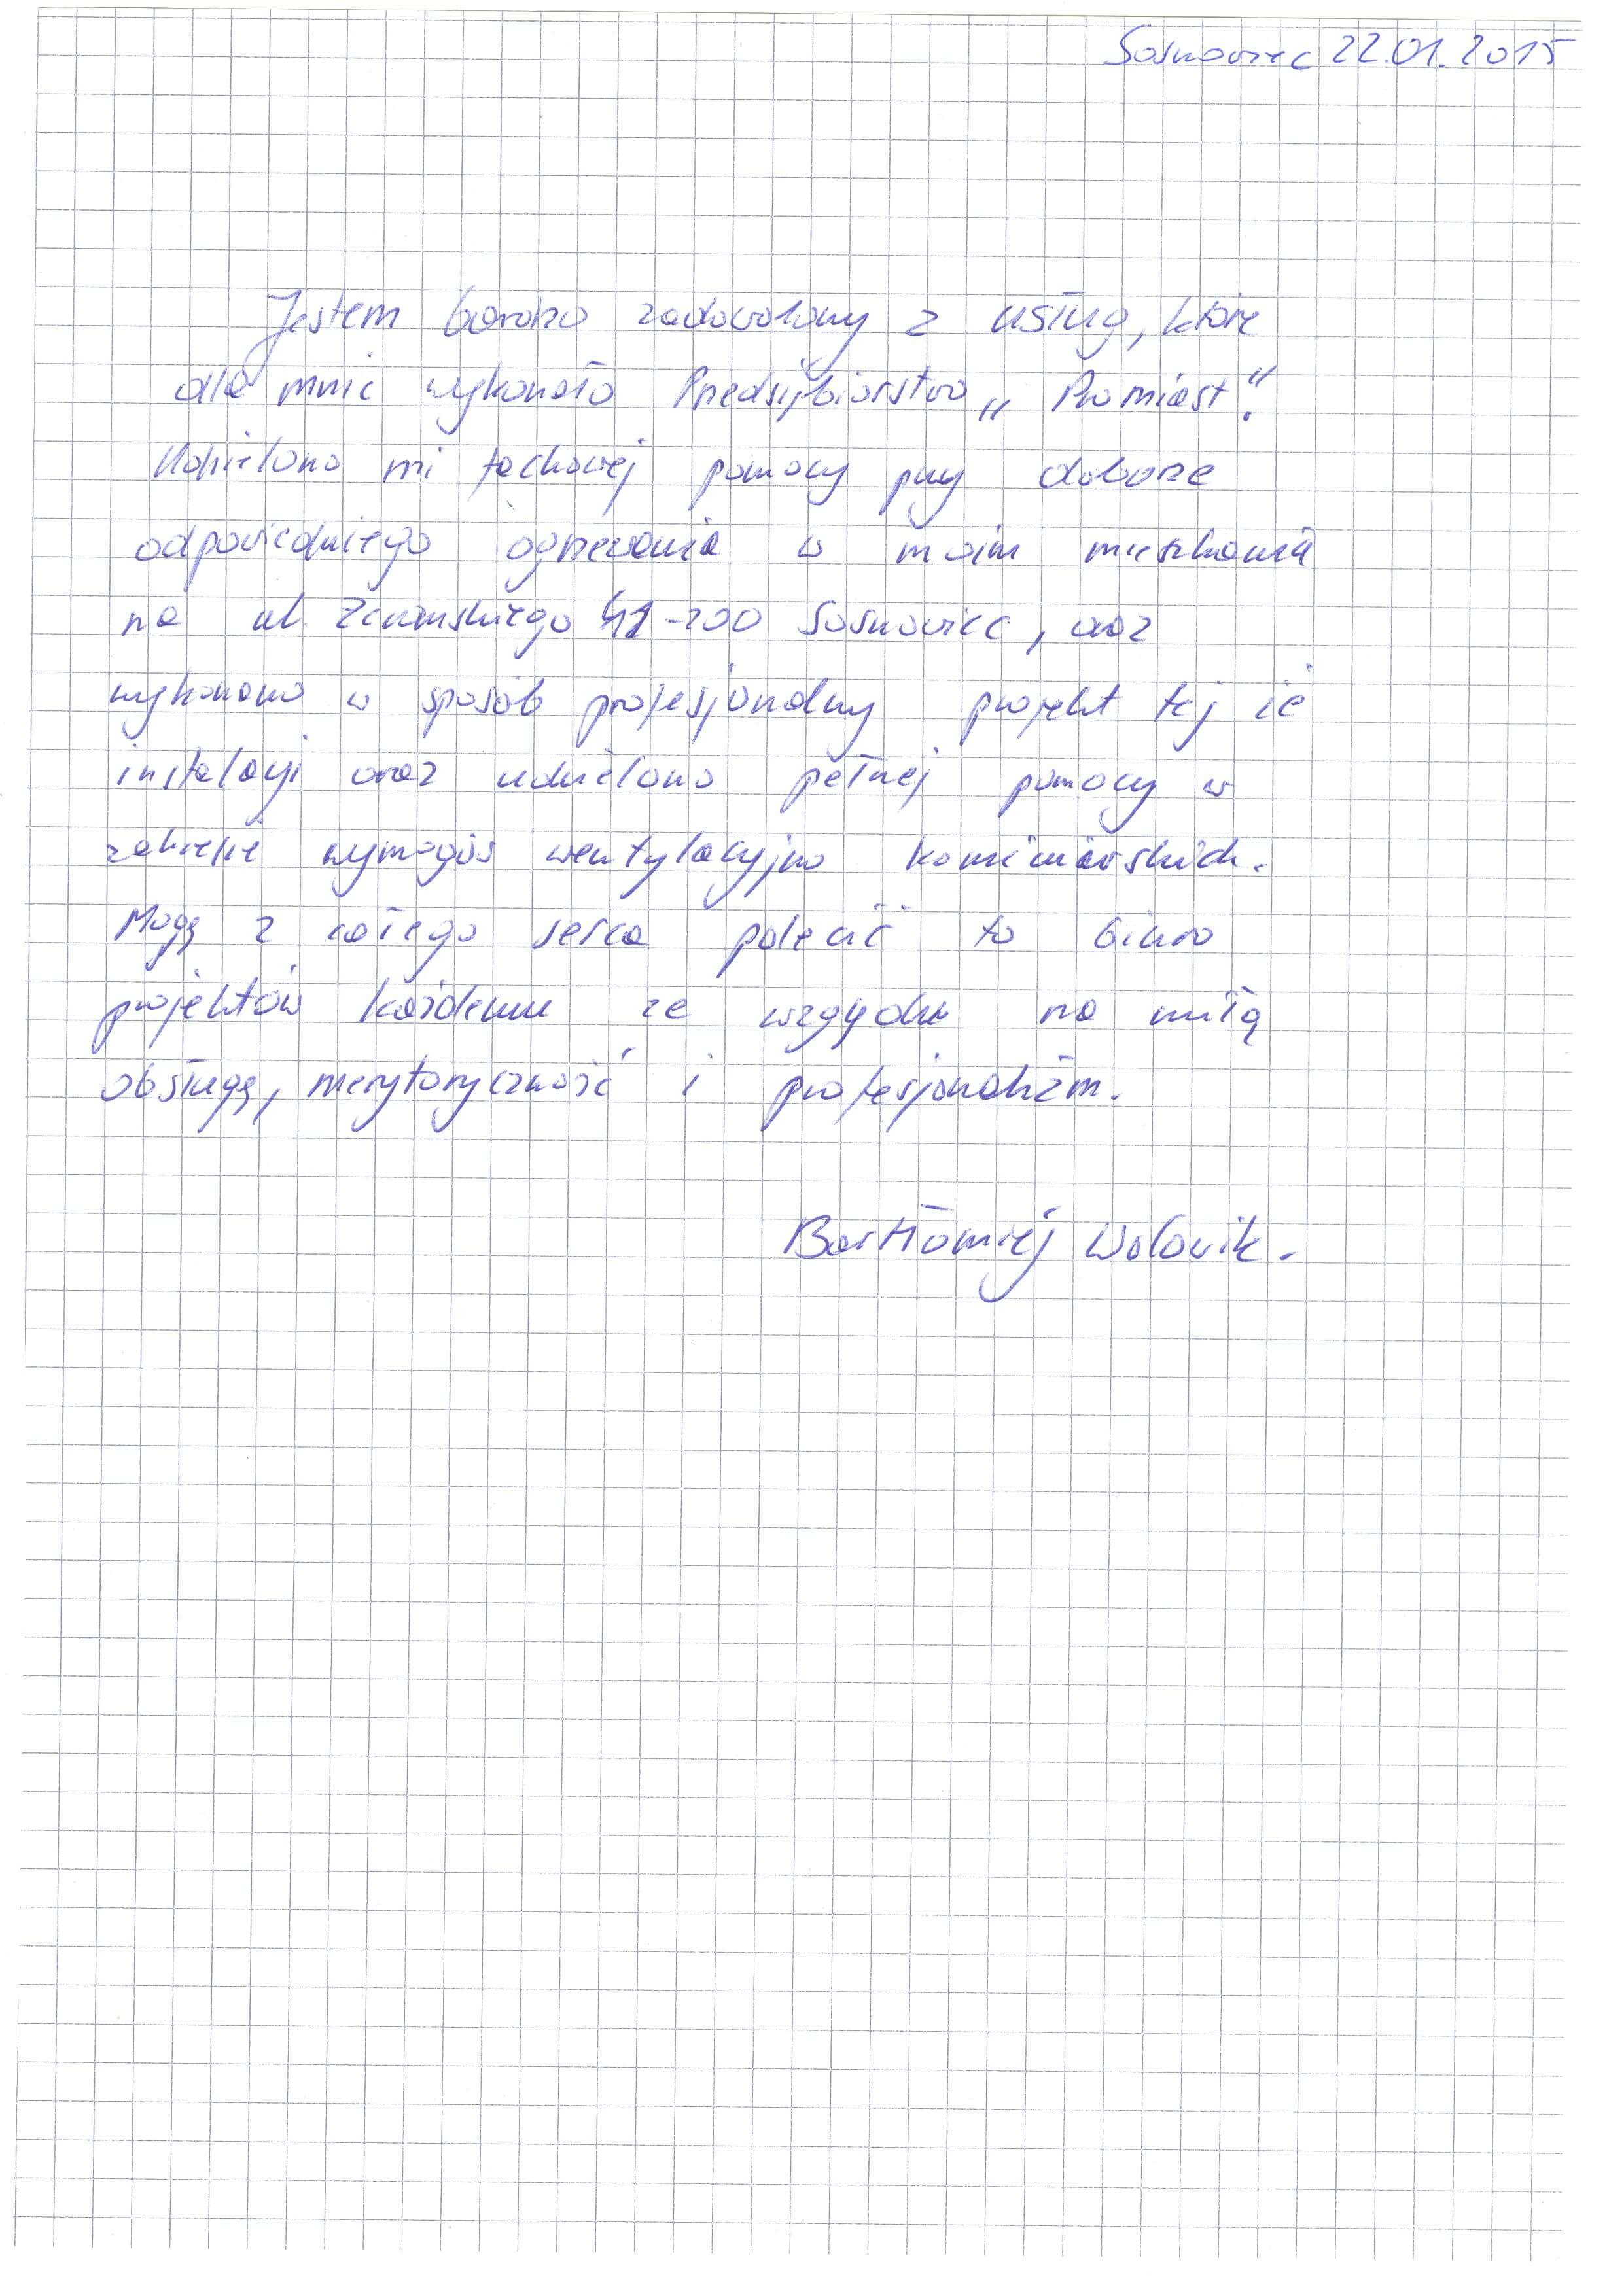 Sosnowiec 22.01.2015
Jestem bardzo zadowolony z usług, które
dla mnie wykonało Przedsiębiorstwo „Promiast".
Udzielono mi fachowej pomocy przy doborze
odpowiedniego ogrzewania w moim mieszkaniu
na ul Żeromskiego 41-200 Sosnowiec, oraz
wykonano w sposób profesjonalny projekt tej że
instalacji oraz udzielono pełnej pomocy w
zakresie wymogów wentylacyjno kominiarskich.
Mogę z całego serca polecić to biuro
projektów każdemu ze względu na miłą
obsługę, merytoryczność i profesjonalizm.
Bartłomiej Wolowik.